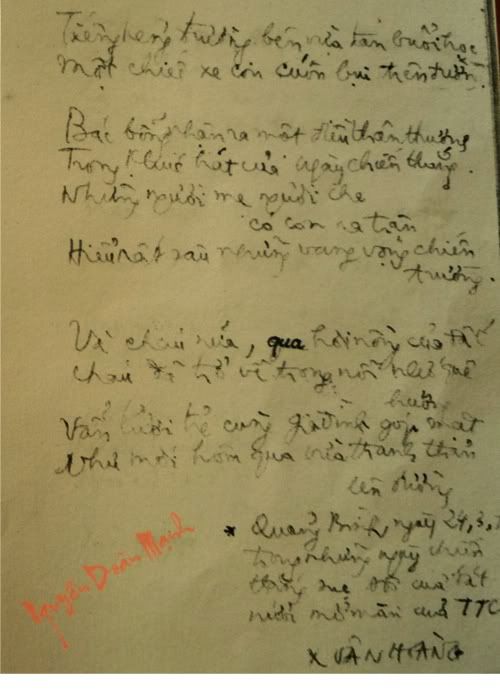 Tiếng kẻng trường bên vừa tan buổi học
Một chiếc xe con cuốn bụi trên đường.
Bác bỗng nhận ra một điều thân thương
Trong khúc hát của ngày chiến thắng.
Những người mẹ người cha
có con ra trận
Hiểu rất sâu những vang vọng chiến
trường.
Và cháu nữa, qua hơi nóng của đất
cháu đã trở về trong nỗi nhớ quê
hương
Vẫn tươi trẻ cùng gia đình góp mặt
Như mới hôm qua vừa thanh thản
lên đường
* Quảng Bình, ngày 24, 3,
trong những ngày chiến
thắng của đất
nước mở màn của TTC
XUÂN HOÀNG
Nguyễn Doãn Mạnh